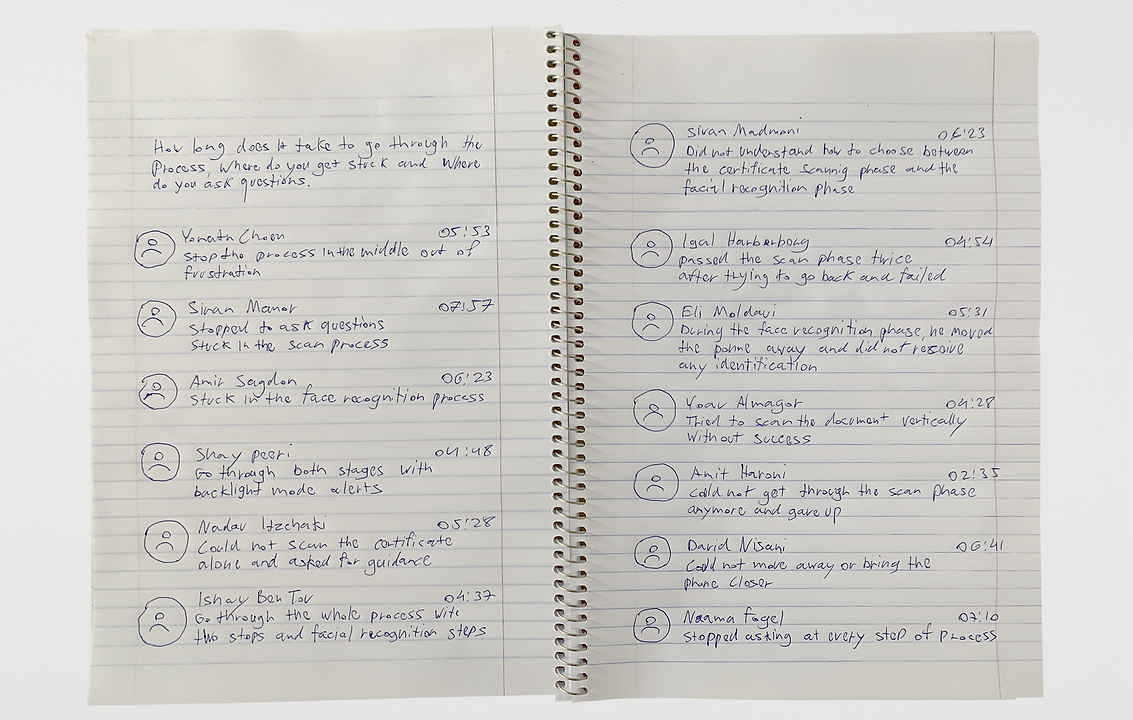 How long does it take to go through the
Process, Where do you get stuck and Where
do you ask questions.
Yonatn Choen 05:53
Stop the process in the middle out of
frustration
Sivan Manor 07:57
Stopped to ask questions
Stuck in the scan process
Amir Sagdon 06:23
Stuck in the face recognition process
Shay peeri 04:48
Go through both stages with
backlight mode alerts
Nadav Itzchaki 05:28
Could not scan the certificate
alone and asked for guidance
Ishay Ben Tov 04:37
Go through the whole process with
two stops and facial recognition steps
Sivan Madmoni 06:23
Did not understand how to choose between
the certificate scannig phase and the
facial recognition phase
Igal Harberborg 04:54
passed the scan phase twice
after trying to go back and failed
Eli Moldavi 05:31
During the face recognition phase, he moved
the pohne away and did not receive
any identification
Yoav Almagor 04:28
Tried to scan the document vertically
Without success
Amit Haroni 02:35
could not get through the scan phase
anymore and gave up
David Nisani 06:41
Could not move away or bring the
phone closer
Naama fogel 07:10
Stopped asking at every step of process